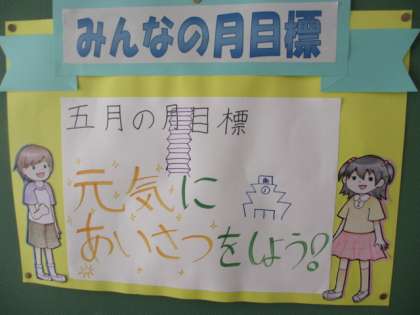 みんなの月目標
五月の月目標
元気に
あいさつをしよう!